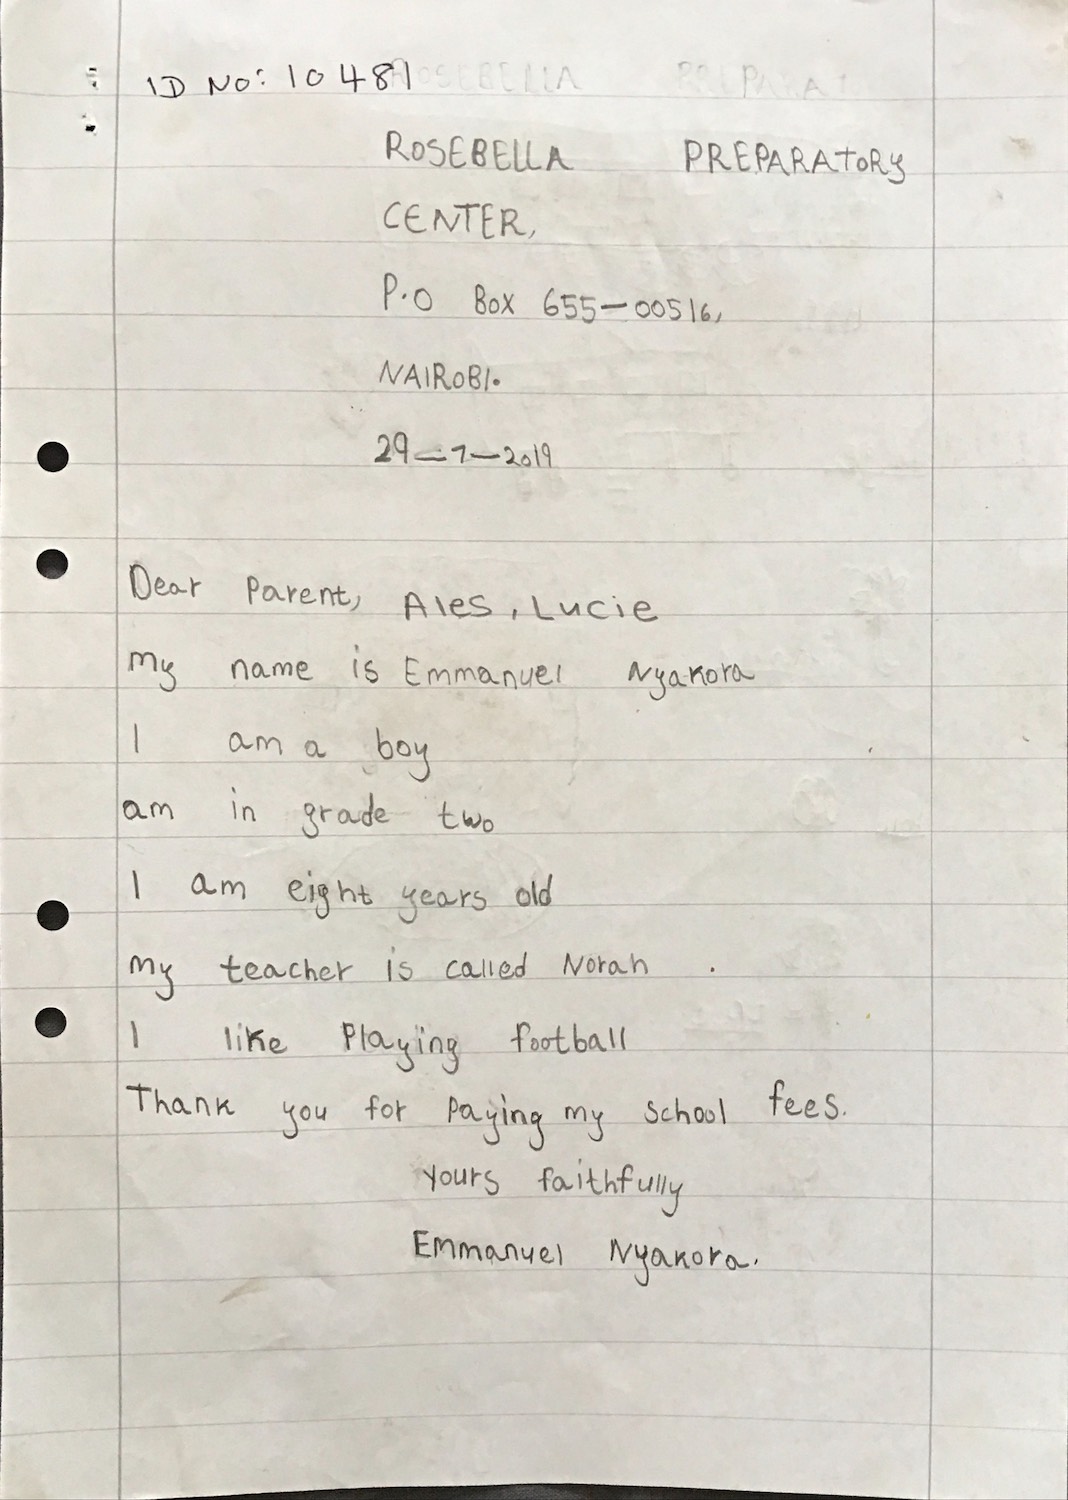 ID No: 10481
ROSEBELLA PREPARATORY
CENTER,
P.O Box 655-00516,
NAIROBI.
29-7-2019
Dear Parent, Ales, Lucie
my name is Emmanuel Nyakora
I am a boy
am in grade two
I am eight years old
my teacher is called Norah .
I like Playing football
Thank you for Paying my school fees.
yours faithfully
Emmanuel Nyakora.